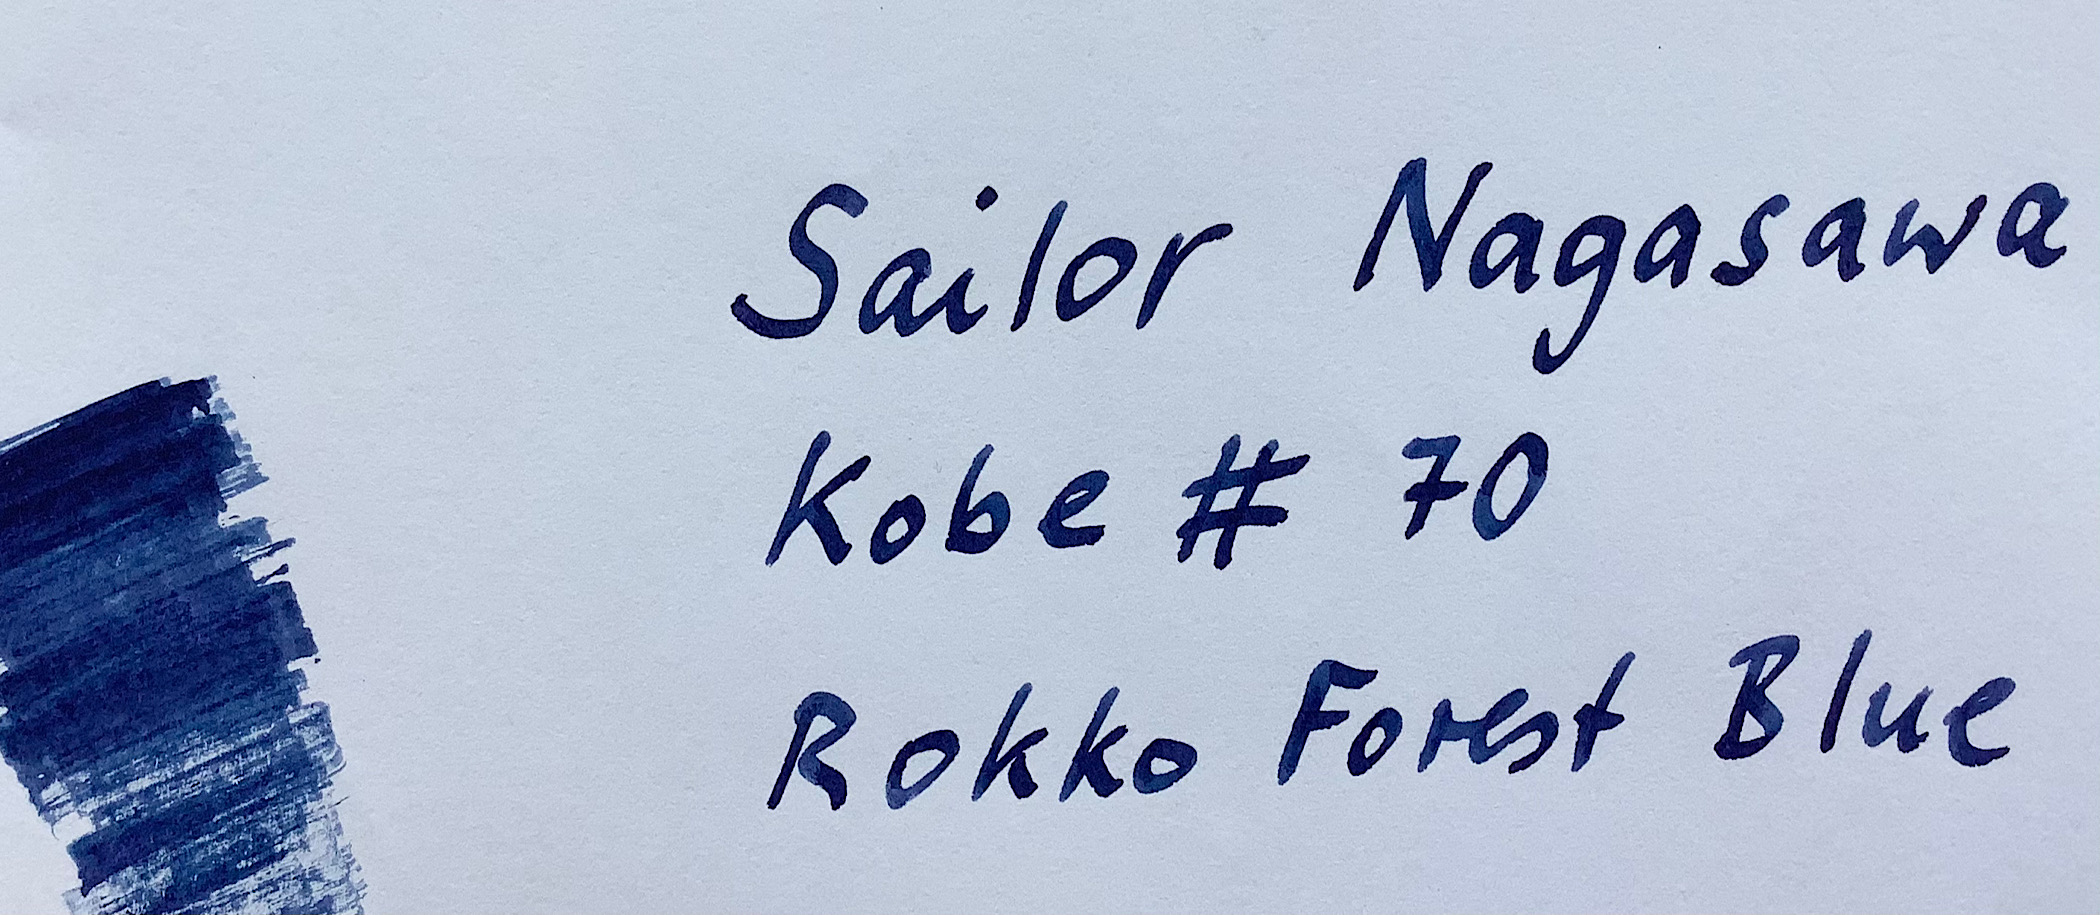 Sailor Nagasawa
Kobe # 70
Rokko Forest Blue